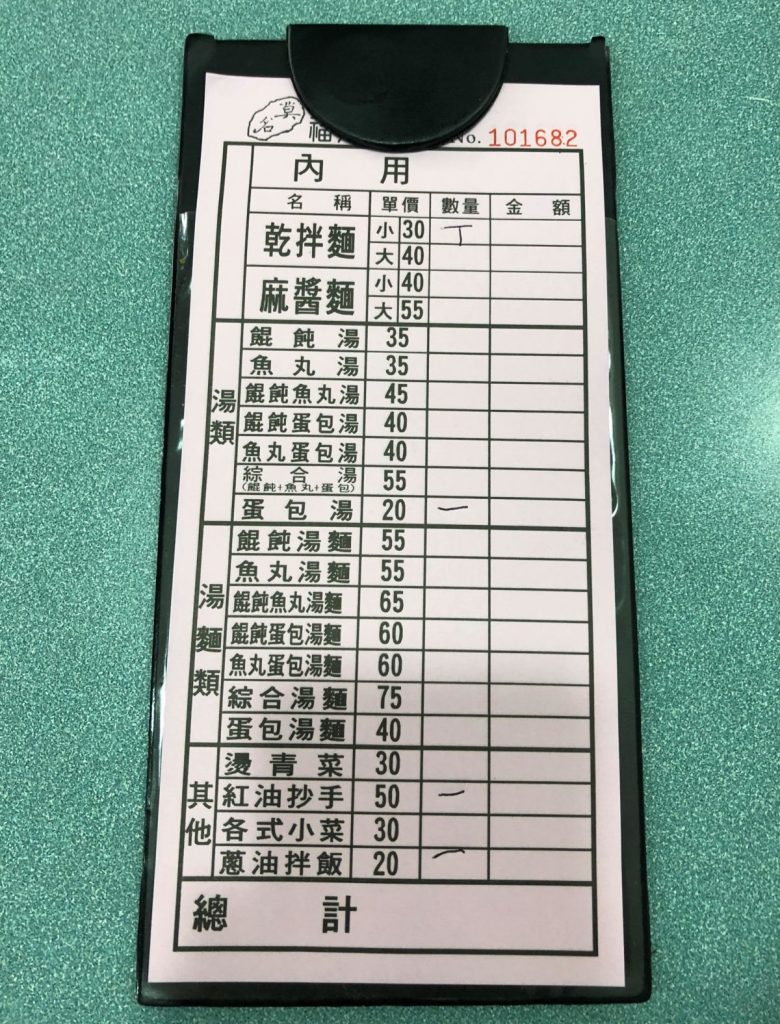 莫名
福 No. 101682
內用
名稱 單價 數量 金額
乾拌麵 小 30 丅
大 40
麻醬麵 小 40
大 55
湯類
餛飩湯 35
魚丸湯 35
餛飩魚丸湯 45
餛飩蛋包湯 40
魚丸蛋包湯 40
綜合湯 55
(餛飩+魚丸+蛋包)
蛋包湯 20 一
湯麵類
餛飩湯麵 55
魚丸湯麵 55
餛飩魚丸湯麵 65
餛飩蛋包湯麵 60
魚丸蛋包湯麵 60
綜合湯麵 75
蛋包湯麵 40
其他
燙青菜 30
紅油抄手 50 一
各式小菜 30
蔥油拌飯 20 一
總計